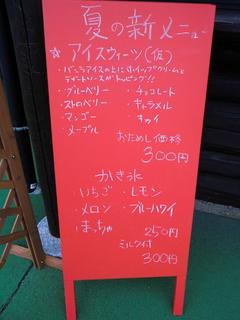 夏の新メニュー
☆アイスウィーツ(仮)
・バニラアイスの上にホイップクリームと
デザートソースがトッピング!!
・ブルーベリー ・チョコレート
・ストロベリー ・キャラメル
・マンゴー ・キウイ
・メープル
おためし価格
300円
かき氷
・いちご ・レモン
・メロン ・ブルーハワイ
・まっちゃ 250円
ミルク付
300円